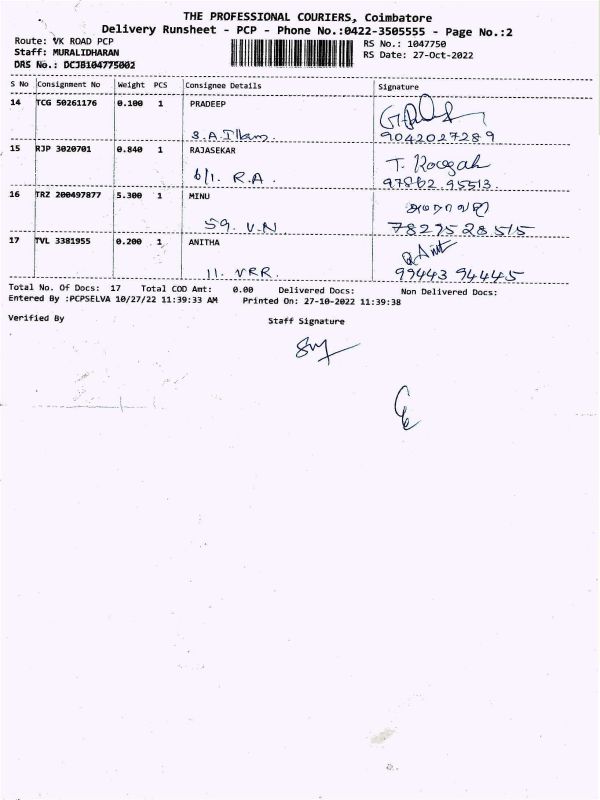 THE PROFESSIONAL COURIERS, Coimbatore
Delivery Runsheet - PCP - Phone No.:0422-3505555 - Page No.:2
Route: VK ROAD PCP
RS No.: 1047750
Staff: MURALIDHARAN
RS Date: 27-Oct-2022
DRS No.: DCJB104775002
S No Consignment No Weight PCS Consignee Details Signature
14 TCG 50261176 0.100 1 PRADEEP
S.A.Illam 9042027289
15 RJP 3020701 0.840 1 RAJASEKAR
6/1. R.A. 97862 95513
16 TRZ 200497877 5.300 1 MINU
59. V.N 78275 28 515
17 TVL 3381955 0.200 1 ANITHA
11. VRR. 99443 94445
Total No. Of Docs: 17 Total COD Amt: 0.00 Delivered Docs: Non Delivered Docs:
Entered By :PCPSELVA 10/27/22 11:39:33 AM Printed On: 27-10-2022 11:39:38
Verified By Staff Signature